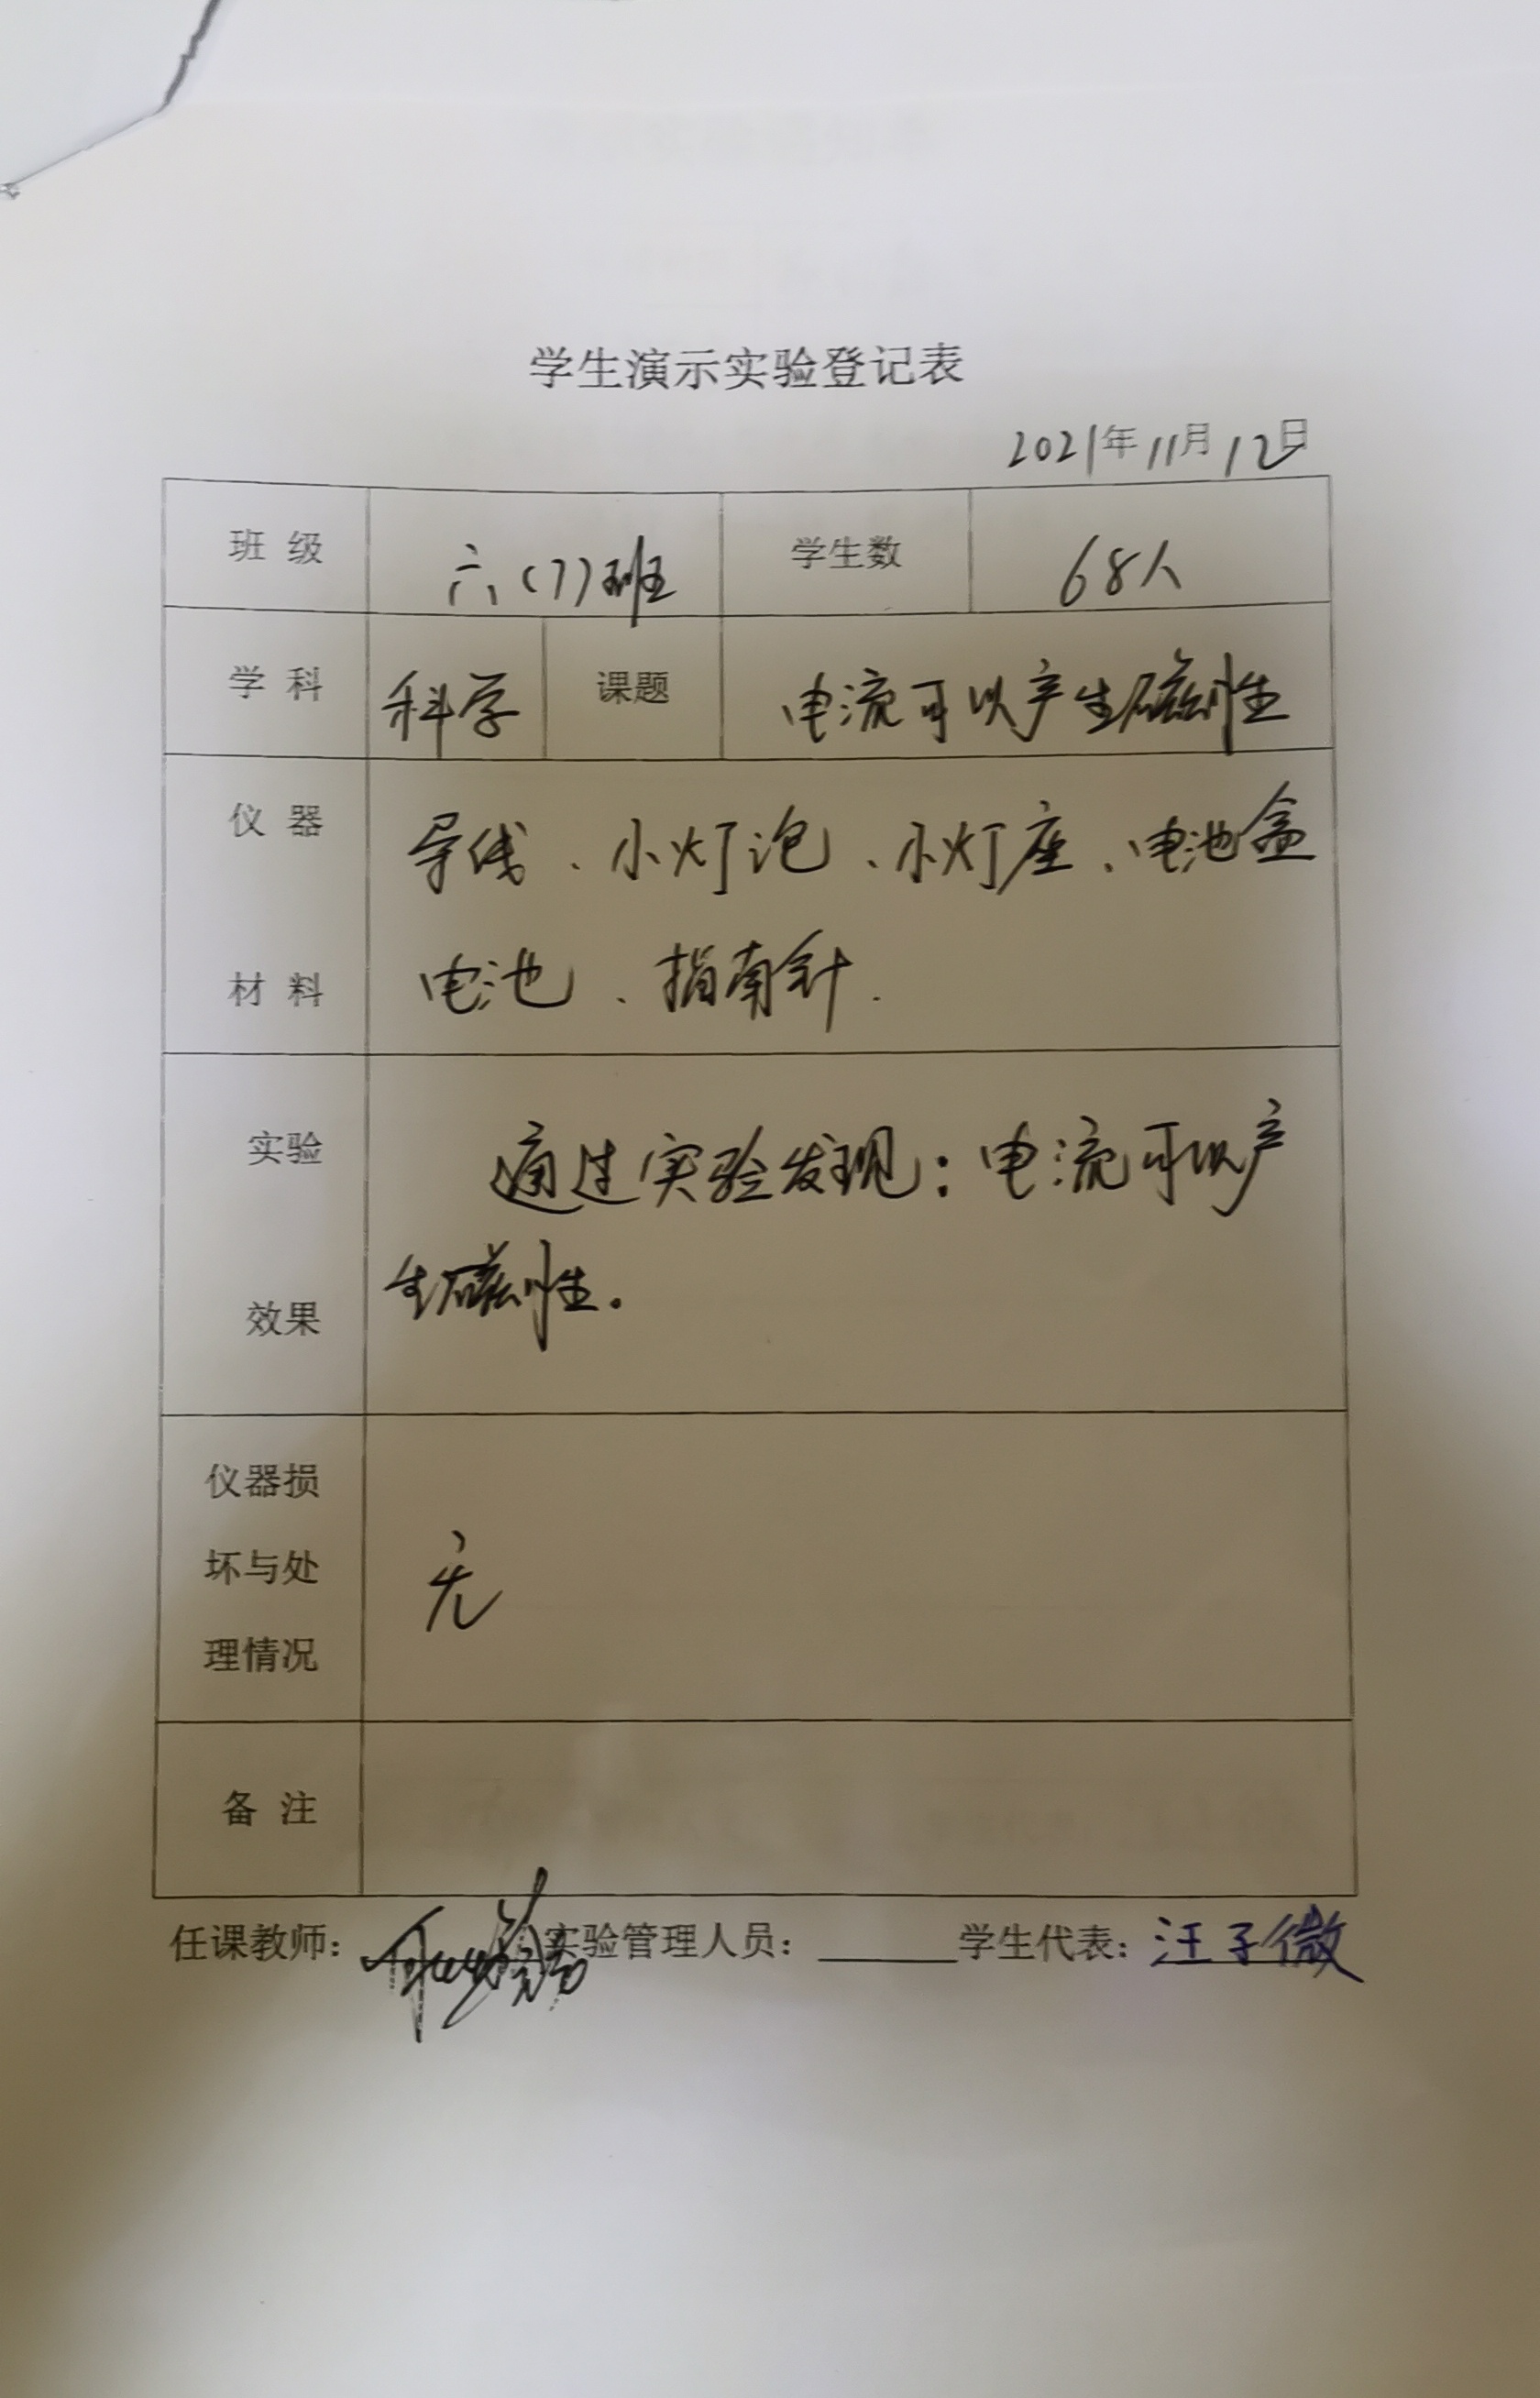 学生演示实验登记表
2021年11月12日
班级 六(7)班 学生数 68人
学科 科学 课题 电流可以产生磁性
仪器 导线、小灯泡、小灯座、电池盒
材料 电池、指南针.
实验 通过实验发现:电流可以产
生磁性.
效果
仪器损
坏与处 无
理情况
备注
任课教师: 实验管理人员: 学生代表: 汪子微